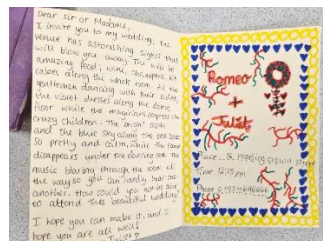 Dear Sir or Madame,
I invite you to my wedding, the
venue has astonishing sights that
will blow you away. This will be
amazing food, wine, champagne, hot
cakes along the whole room. All the
gentlemen dancing with their ladies,
the violet dresses along the dance
floor while the magicians impress the
crazy children. The bright sight
and the blue sky along the sea looks
so pretty and calm, while the sand
disappears under the dancing sea. The
music blaring through the room all
the way so you can hardly hear one
another. How could you not be able
to attend this beautiful wedding?
I hope you can make it, and I
hope you are all well!
Juliet
Romeo
+
Juliet
Place
Time 12:15 pm
Phone